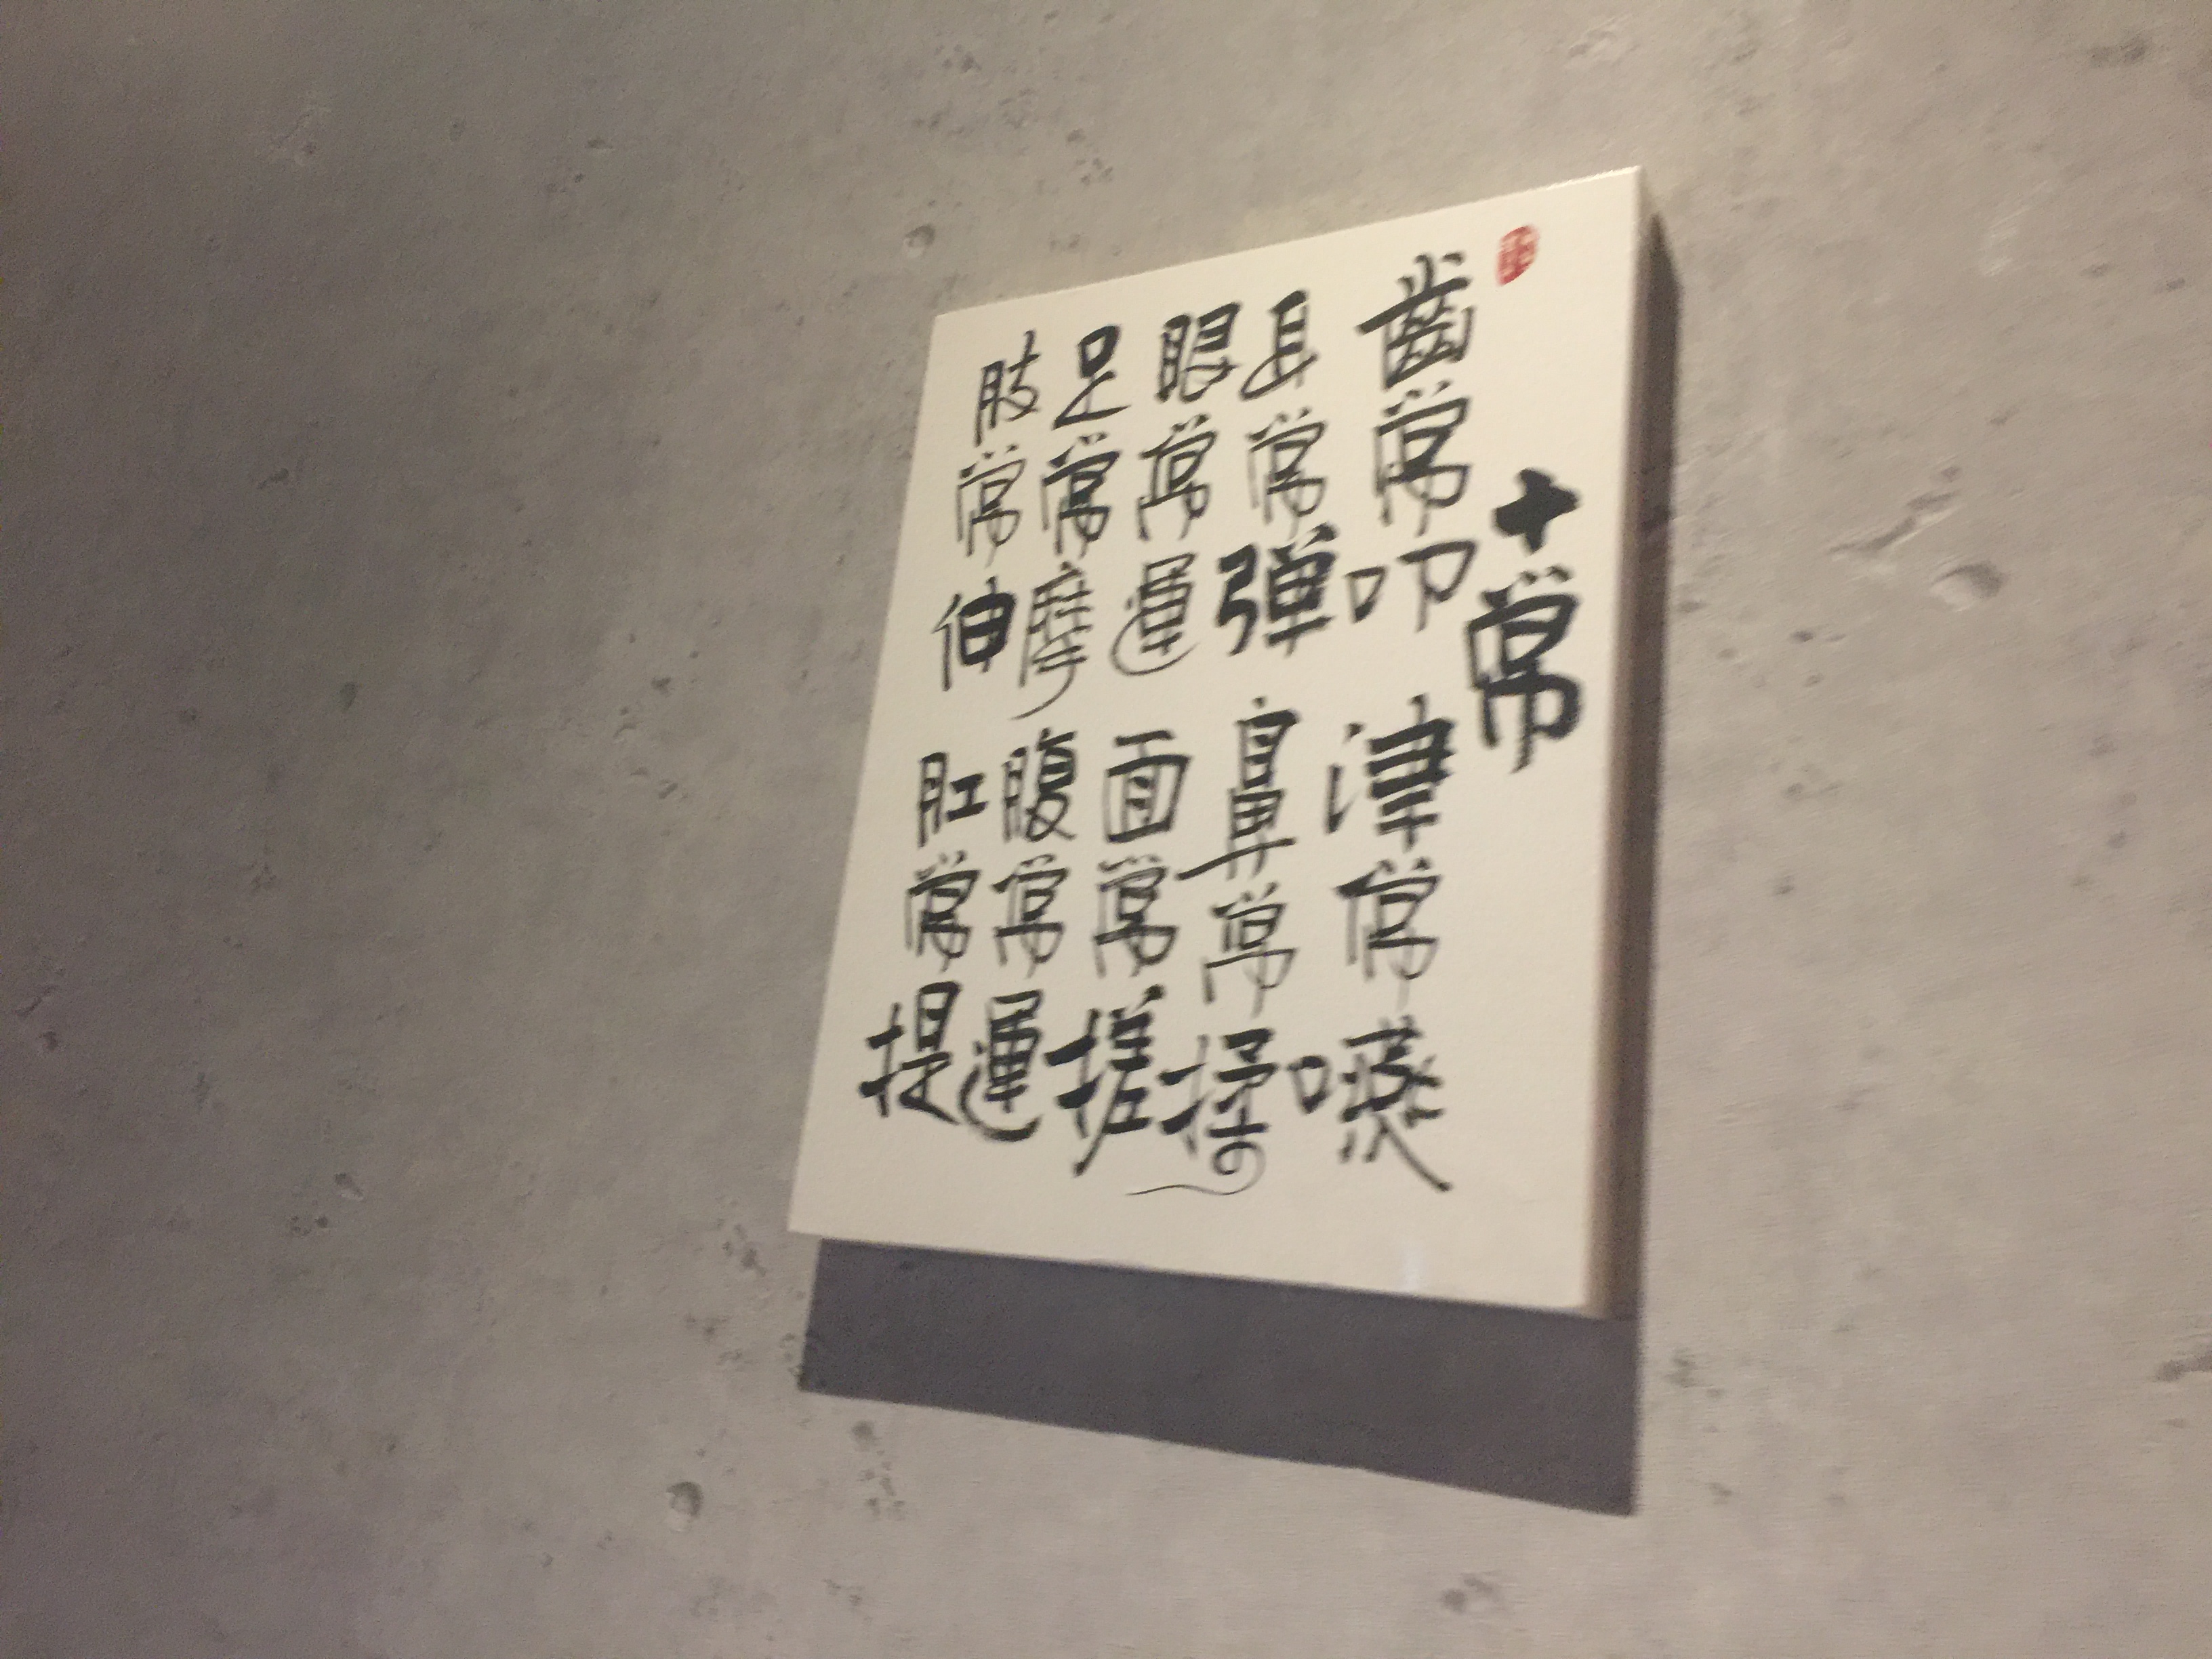 十常
齒常叩 津常嚥
耳常彈 鼻常揉
眼常運 面常搓
足常摩 腹常運
肢常伸 肛常提